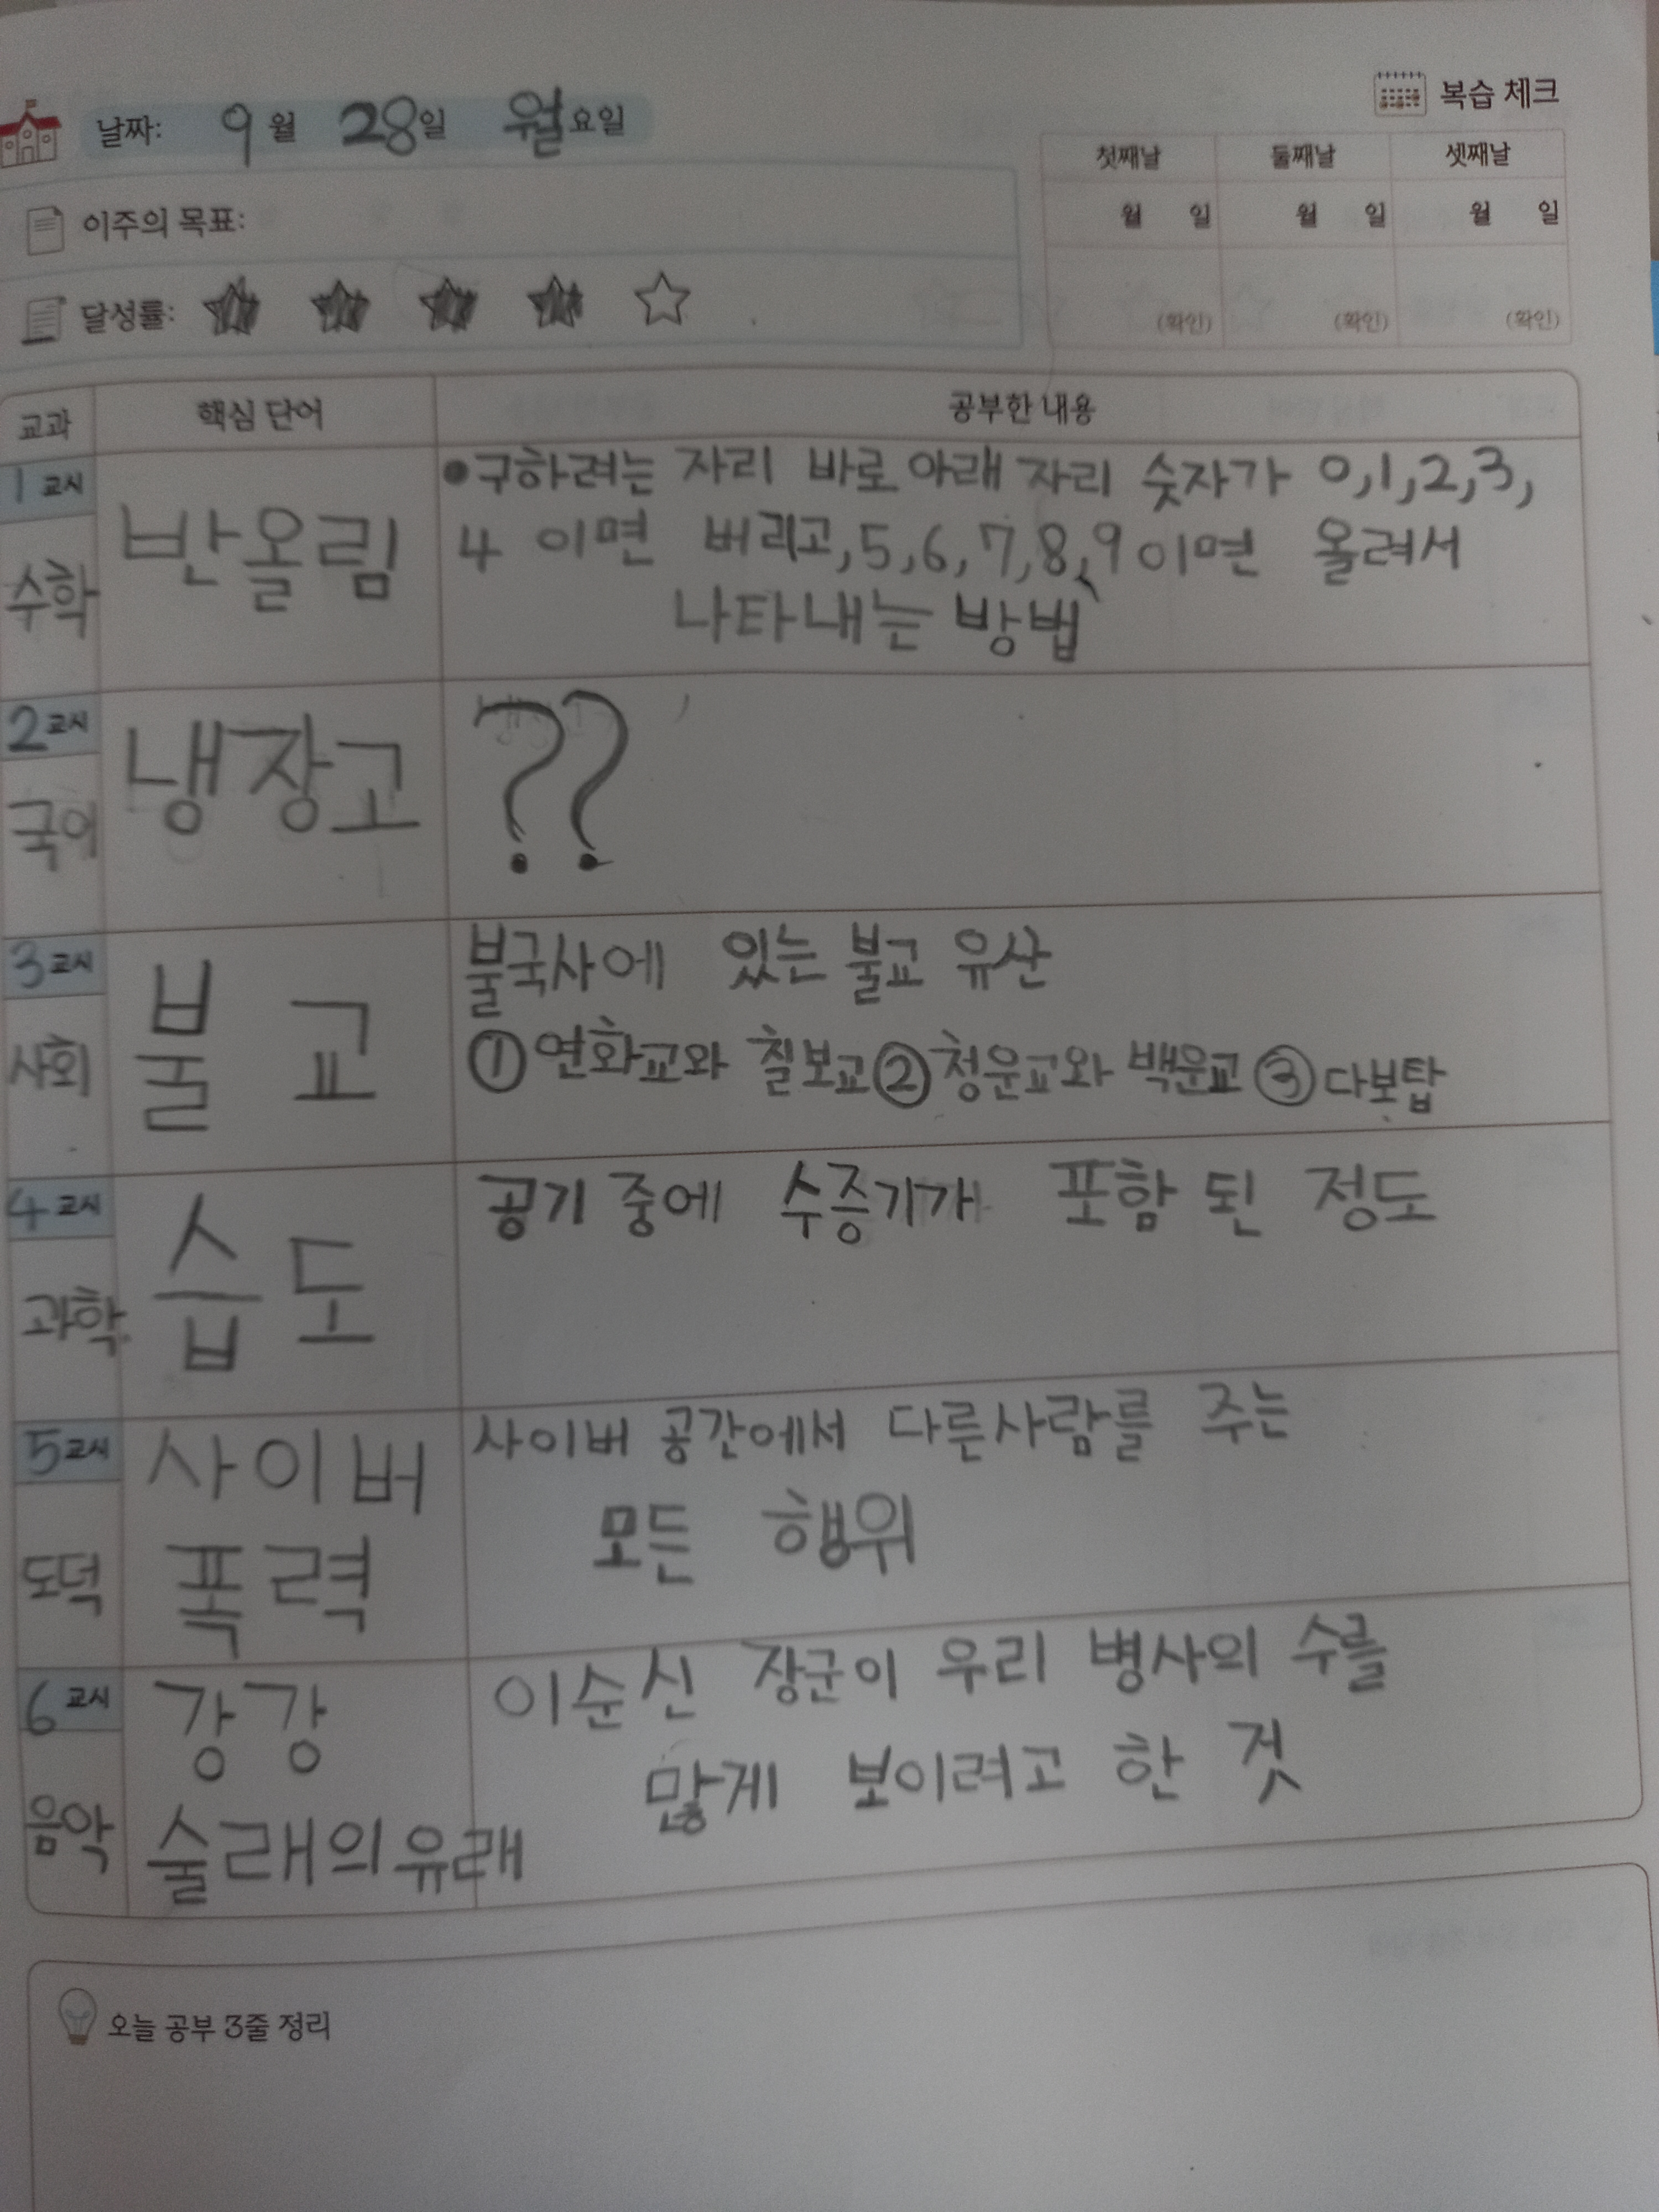 날짜: 9월 28일 월요일
복습 체크
첫째날 둘째날 셋째날
월 일 월 일 월 일
(확인) (확인) (확인)
이주의 목표:
달성률:
교과 핵심 단어 공부한 내용
1교시
수학
반올림
●구하려는 자리 바로 아래 자리 숫자가 0,1,2,3,
4 이면 버리고,5,6,7,8,9이면 올려서
나타내는 방법
2교시
국어
냉장고
??
3교시
사회
불교
불국사에 있는 불교 유산
①연화교와 칠보교②청운교와 백운교③다보탑
4교시
과학
습도
공기 중에 수증기가 포함 된 정도
5교시
도덕
사이버
폭력
사이버 공간에서 다른사람를 주는
모든 행위
6교시
음악
강강
술래의유래
이순신 장군이 우리 병사의 수를
많게 보이려고 한 것
오늘 공부 3줄 정리